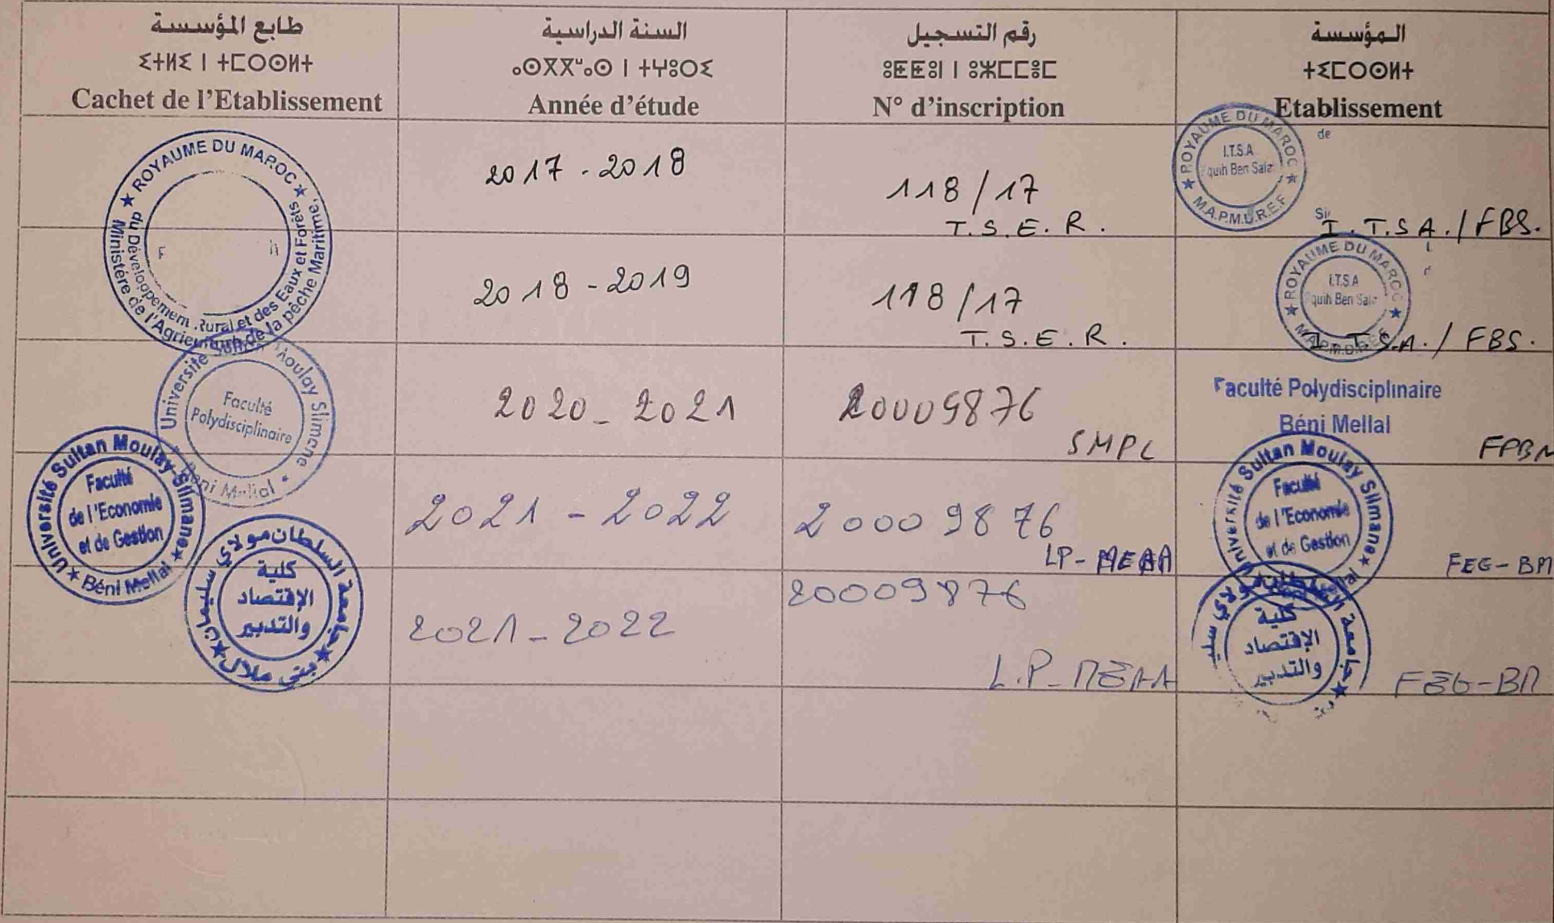 طابع المؤسسة
ⵉⵜⵍⵉ ⵏ ⵜⵎⵙⵙⵍⵜ
Cachet de l'Etablissement
السنة الدراسية
ⴰⵙⴳⴳⵯⴰⵙ ⵏ ⵜⵖⵓⵔⵉ
Année d'étude
رقم التسجيل
ⵓⵟⵟⵓⵏ ⵏ ⵓⵣⵎⵎⵓⵎ
N° d'inscription
المؤسسة
ⵜⵉⵎⵙⵙⵍⵜ
Etablissement
★ ROYAUME DU MAROC ★
Ministère de l'Agriculture de la pêche Maritime,
du Développement Rural et des Eaux et Forêts
2017 - 2018
118/17
T.S.E.R.
ROYAUME DU MAROC
I.T.S.A
quih Ben Sala
★ M.A.P.M.D.R.E.F ★
de
I.T.S.A./FBS.
2018 - 2019
118/17
T.S.E.R.
ROYAUME DU MAROC
I.T.S.A
quih Ben Sala
★ M.A.P.M.D.R.E.F ★
I.T.S.A./ FBS.
Université Sultan Moulay Slimane
Faculté
Polydisciplinaire
Béni Mellal
2020 - 2021
20009876
SMPC
Faculté Polydisciplinaire
Béni Mellal
FPBM
Université Sultan Moulay Slimane
Faculté
de l'Economie
et de Gestion
★ Béni Mellal ★
2021 - 2022
20009876
LP-MEAA
Université Sultan Moulay Slimane
Faculté
de l'Economie
et de Gestion
FEG-BM
جامعة السلطان مولاي سليمان
كلية
الإقتصاد
والتدبير
★ بني ملال ★
2021 - 2022
20009876
L.P-MEAA
كلية
الإقتصاد
والتدبير
FEG-BM